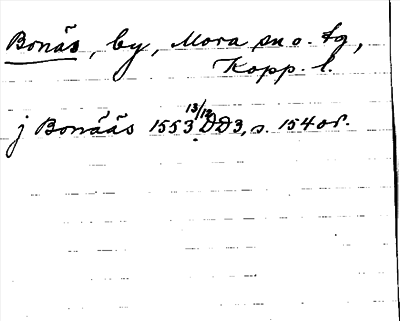 Bonäs, by, Mora sn o. tg,
Kopp. l.
j Bonäås 1553 13/12 DD3, s. 154 or.